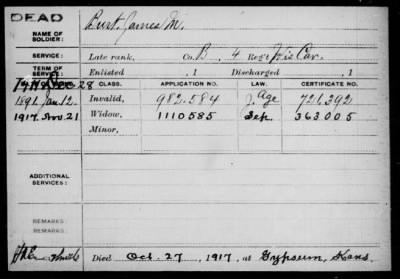 DEAD
NAME OF SOLDIER: Burt, James M.
SERVICE: Late rank, Co. B, 4 Reg't Wis Cav.
TERM OF SERVICE: Enlisted , 1 Discharged , 1
CLASS. APPLICATION NO. LAW. CERTIFICATE NO.
28
1891 Jan. 12. Invalid, 982.584 Age 721,392
1917. Nov. 21 Widow, 1110585 363005
Minor,
ADDITIONAL SERVICES:
REMARKS:
REMARKS:
Died Oct. 27, 1917, at Gypsum, Kans.